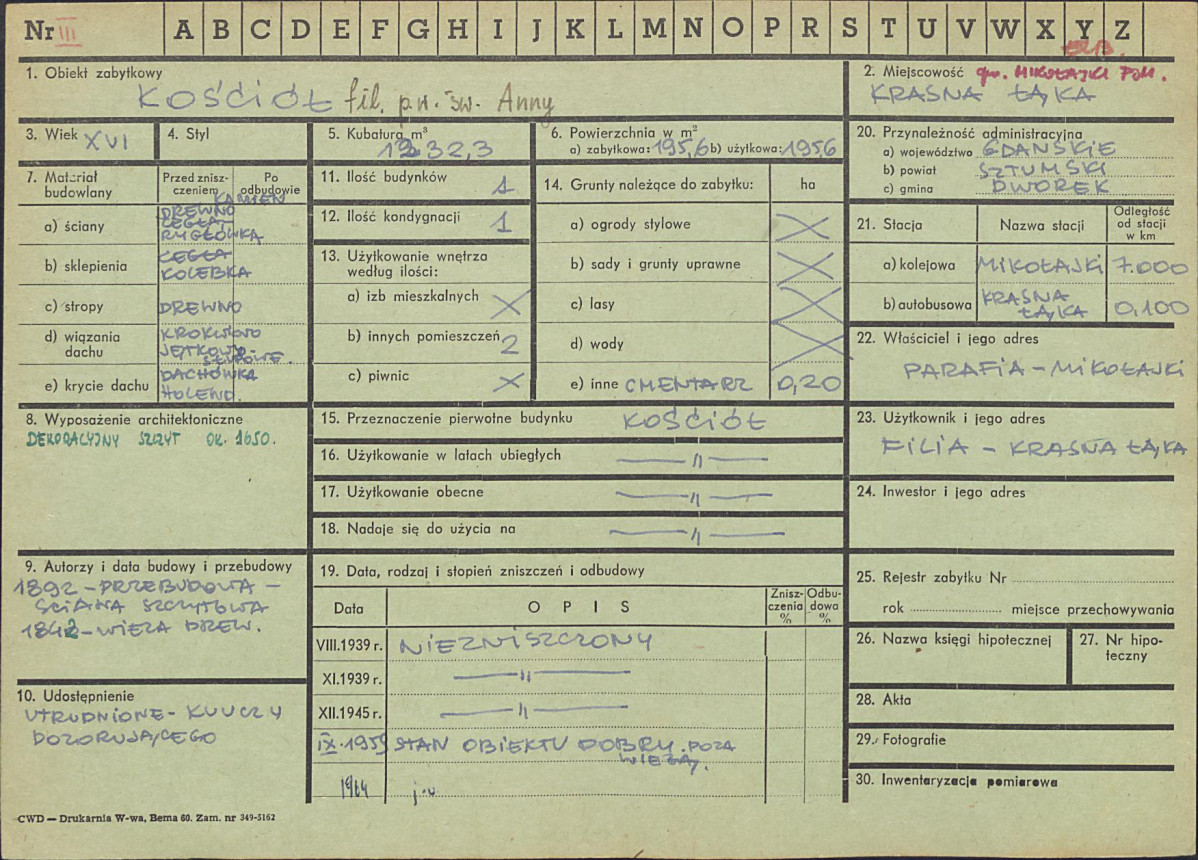 Nr III A B C D E F G H I J K L M N O P R S T U V W X Y Z
1. Obiekt zabytkowy
KOŚCIÓŁ fil. p.w. św. Anny
2. Miejscowość gm. MIKOŁAJKI POM.
KRASNA ŁĄKA
3. Wiek XVI
4. Styl
5. Kubatura m³
1332,3
6. Powierzchnia w m²
a) zabytkowa: 195,6 b) użytkowa: 195,6
20. Przynależność administracyjna
a) województwo GDAŃSKIE
b) powiat SZTUMSKI
c) gmina DWOREK
7. Materiał budowlany
Przed zniszczeniem
Po odbudowie
KAMIEŃ
a) ściany DREWNO
CEGŁA,
RYGLÓWKA
b) sklepienia CEGŁA
KOLEBKA
c) stropy DREWNO
d) wiązania dachu KROKWIOWO
JĘTKOWO-
STOLCOWE.
e) krycie dachu DACHÓWKA
HOLEND.
11. Ilość budynków 1
12. Ilość kondygnacji 1
13. Użytkowanie wnętrza
według ilości:
a) izb mieszkalnych X
b) innych pomieszczeń 2
c) piwnic X
14. Grunty należące do zabytku: ha
a) ogrody stylowe X
b) sady i grunty uprawne X
c) lasy X
d) wody X
e) inne CMENTARZ 0,20
21. Stacja Nazwa stacji Odległość od stacji w km
a) kolejowa MIKOŁAJKI 7.000
b) autobusowa KRASNA ŁĄKA 0,100
22. Właściciel i jego adres
PARAFIA – MIKOŁAJKI
8. Wyposażenie architektoniczne
DEKORACYJNY SZCZYT OK. 1650.
15. Przeznaczenie pierwotne budynku KOŚCIÓŁ
16. Użytkowanie w latach ubiegłych — " —
17. Użytkowanie obecne — " —
18. Nadaje się do użycia na — " —
23. Użytkownik i jego adres
FILIA – KRASNA ŁĄKA
24. Inwestor i jego adres
9. Autorzy i data budowy i przebudowy
1892 – PRZEBUDOWA –
ŚCIANA SZCZYTOWA
1842 – WIEŻA DREW.
10. Udostępnienie
UTRUDNIONE – KLUCZ Y
DOZORUJĄCEGO
19. Data, rodzaj i stopień zniszczeń i odbudowy
Data OPIS Zniszczenia % Odbudowa %
VIII.1939 r. NIEZNISZCZONY
XI.1939 r. — " —
XII.1945 r. — " —
IX.1959 STAN OBIEKTU DOBRY. POZA
WIEŻĄ.
1964 j.w
25. Rejestr zabytku Nr
rok miejsce przechowywania
26. Nazwa księgi hipotecznej
27. Nr hipoteczny
28. Akta
29. Fotografie
30. Inwentaryzacja pomiarowa
CWD — Drukarnia W-wa, Bema 60. Zam. nr 349-5162